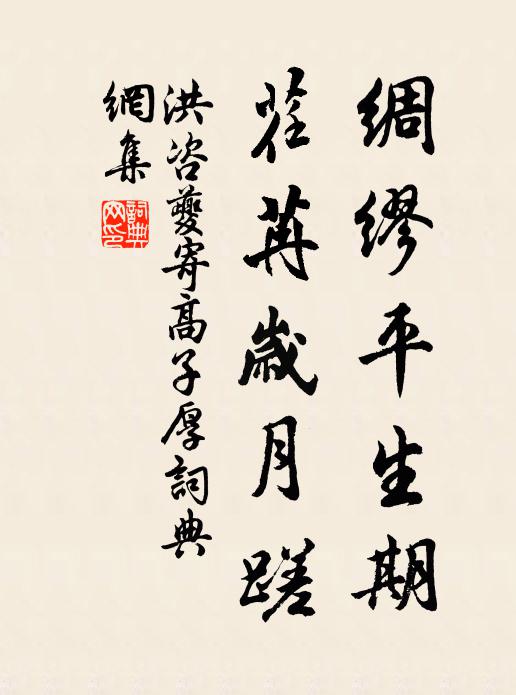 綢繆平生期
荏苒歲月蹉
洪咨夔寄高子厚詞典
網集
詞典網印